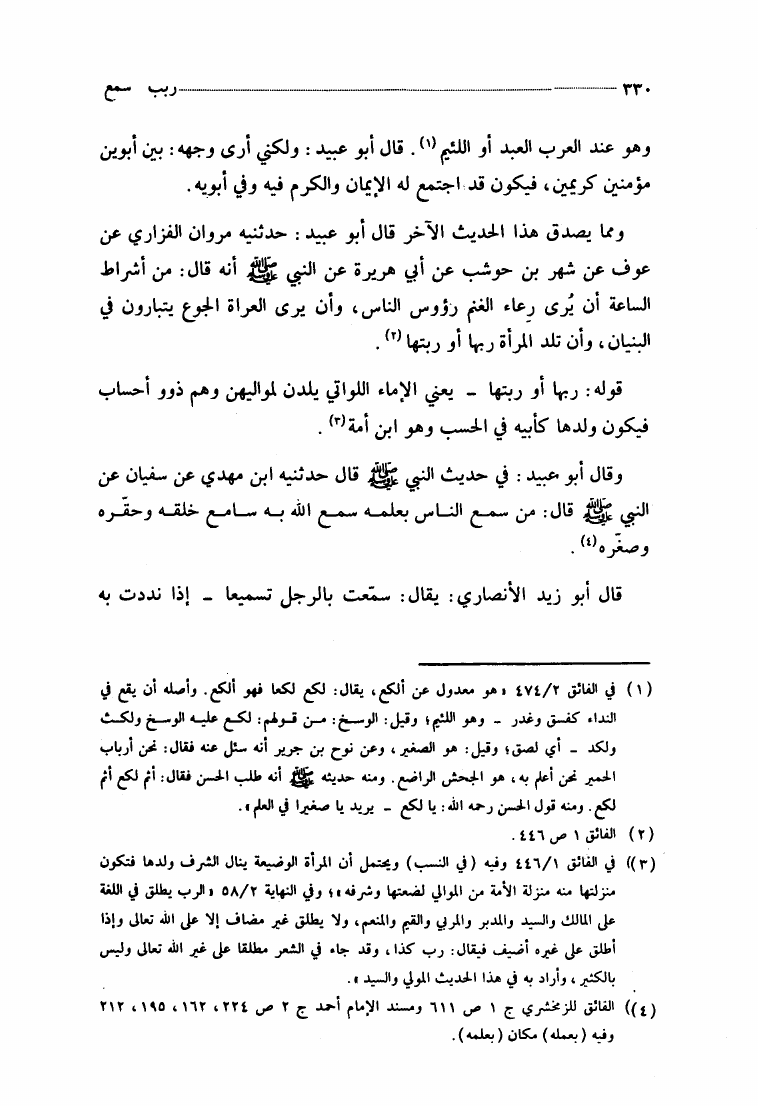 ربب سمع ٣٣٠
وهو عند العرب العبد أو اللئيم(١). قال أبو عبيد: ولكني أرى وجهه: بين أبوين
مؤمنين كريمين، فيكون قد اجتمع له الإيمان والكرم فيه وفي أبويه.
ومما يصدق هذا الحديث الآخر قال أبو عبيد: حدثنيه مروان الفزاري عن
عوف عن شهر بن حوشب عن أبي هريرة عن النبي ﷺ أنه قال: من أشراط
الساعة أن يُرى رِعاء الغنم رؤوس الناس، وأن يرى العراة الجوع يتبارون في
البنيان، وأن تلد المرأة ربها أو ربتها(٢).
قوله: ربها أو ربتها - يعني الإماء اللواتي يلدن لمواليهن وهم ذوو أحساب
فيكون ولدها كأبيه في الحسب وهو ابن أمة(٣).
وقال أبو عبيد: في حديث النبي ﷺ قال حدثنيه ابن مهدي عن سفيان عن
النبي ﷺ قال: من سمع الناس بعلمه سمع الله به سامع خلقه وحقّره
وصغّره(٤).
قال أبو زيد الأنصاري: يقال: سمّعت بالرجل تسميعا - إذا نددت به
(١) في الفائق ٤٧٤/٢ «هو معدول عن ألكع، يقال: لكع لكعا فهو ألكع. وأصله أن يقع في
النداء كفسق وغدر - وهو اللئيم؛ وقيل: الوسخ: من قولهم: لكع عليه الوسخ ولكث
ولكد - أي لصق؛ وقيل: هو الصغير، وعن نوح بن جرير أنه سئل عنه فقال: نحن أرباب
الحمير نحن أعلم به، هو الجحش الراضع. ومنه حديثه ﷺ أنه طلب الحسن فقال: أثم لكع أثم
لكع. ومنه قول الحسن رحمه الله: يا لكع - يريد يا صغيرا في العلم».
(٢) الفائق ١ ص ٤٤٦.
(٣)) في الفائق ٤٤٦/١ وفيه (في النسب) ويحتمل أن المرأة الوضيعة ينال الشرف ولدها فتكون
منزلتها منه منزلة الأمة من الموالي لضعتها وشرفه»؛ وفي النهاية ٥٨/٢ «الرب يطلق في اللغة
على المالك والسيد والمدبر والمربي والقيم والمنعم، ولا يطلق غير مضاف إلا على الله تعالى وإذا
أطلق على غيره أضيف فيقال: رب كذا، وقد جاء في الشعر مطلقا على غير الله تعالى وليس
بالكثير، وأراد به في هذا الحديث المولي والسيد».
(٤)) الفائق للزمخشري ج ١ ص ٦١١ ومسند الإمام أحمد ج ٢ ص ٢٢٤، ١٦٢، ١٩٥، ٢١٢
وفيه (بعمله) مكان (بعلمه).